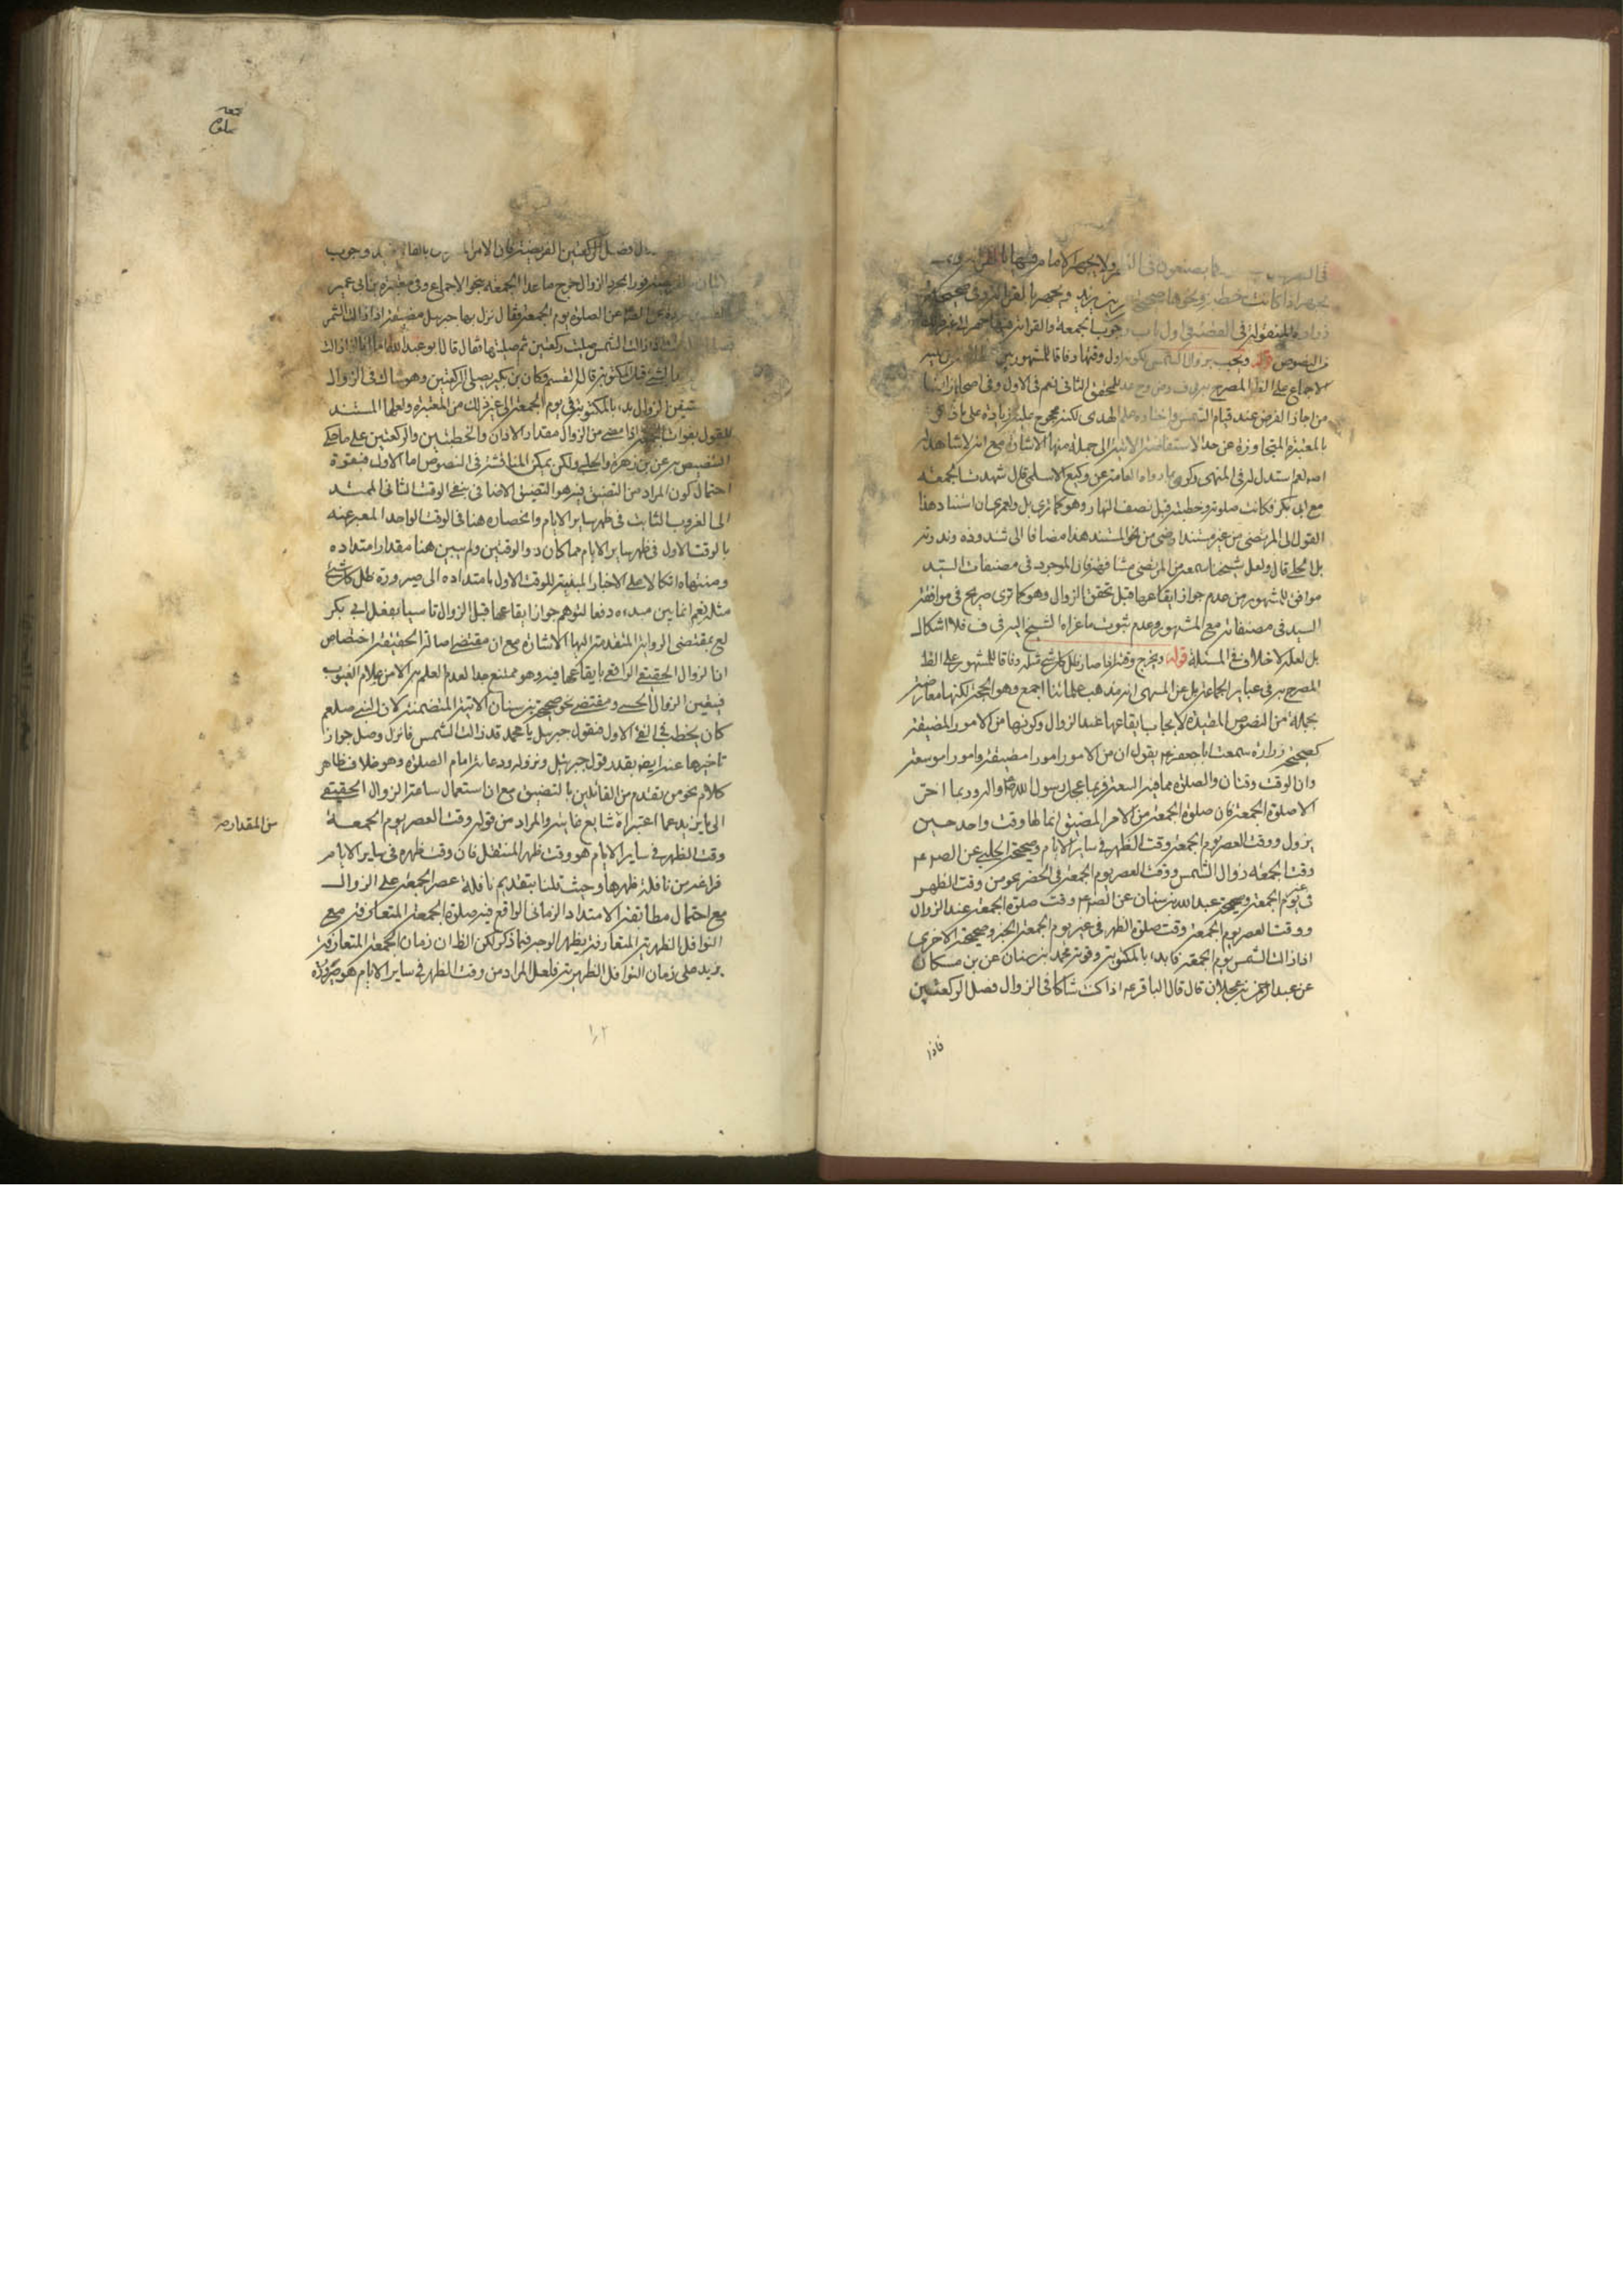 في السفر كما يصنعون في الظهر ولا يجهر الامام فيها بالقرائة
يجهر اذا كانت خطبة ونحوها صحيحة
زرارة المنقولة في الفقيه في اول باب وجوب الجمعة والقرائة فيها
النصوص قوله وتجب بزوال الشمس لكونه اول وقتها وفاقا للمشهور بين
الاجماع على الظ المصرح به في للمحقق الثاني نعم في الاول وفي اصحابنا
من اجاز الفرض عند قيام الشمس واختاره علم الهدى لكنه محجوج عليه زيادة على ما
بالمعتبرة المتجاوزة عن حد الاستفاضة الاتية الى جملة منها الاشارة مع انه لا شاهد له
استدل له في المنتهى رواه العامة عن وكيع الاسلمي قال شهدت الجمعة
مع ابي بكر فكانت صلوته وخطبته قبل نصف النهار وهو كما ترى بل ولعمري ان اسناد هذا
القول الى المرتضى من غير مستند هذا مضافا الى شذوذه وندرته
بل الحلي قال ولعل شيخنا سمعه من المرتضى مشافهة فان الموجود في مصنفات السيد
موافق للمشهور من عدم جواز ايقاعها قبل تحقق الزوال وهو كما ترى صريح في موافقة
السيد في مصنفاته مع المشهور وعدم ثبوت ما عزاه الشيخ اليه في ف فلا اشكال
بل لعله لا خلاف في المسئلة قوله ويخرج وقتها اذا صار ظل كل شيء مثله وفاقا للمشهور على الظ
المصرح به في عباير الجماعة بل عن المنتهى انه مذهب علمائنا اجمع وهو الحجة لكنها معارضة
بجملة من النصوص المفيدة لايجاب ايقاعها عند الزوال وكونها من الامور المضيقة
كصحيحة زرارة سمعت ابا جعفر ع يقول ان من الامور امورا مضيقة وامورا موسعة
وان الوقت وقتان والصلوة مما فيه السعة فربما عجل رسول الله ص واله وربما اخر
الا صلوة الجمعة فان صلوة الجمعة من الامر المضيق انما لها وقت واحد حين
يزول ووقت العصر يوم الجمعة وقت الظهر في ساير الايام وصحيحة الحلبي عن الصم ع
وقت الجمعة زوال الشمس ووقت العصر يوم الجمعة في الحضر نحو من وقت الظهر
في غير يوم الجمعة وصحيحة عبد الله بن سنان عن الصم ع وقت صلوة الجمعة عند الزوال
ووقت العصر يوم الجمعة وقت صلوة الظهر في غير يوم الجمعة الخبر وصحيحته الاخرى
اذا زالت الشمس يوم الجمعة فابدء بالمكتوبة وقوية محمد بن سنان عن بن مسكان
عن عبد الرحمن بن عجلان قال قال الباقر ع اذا كنت شاكا في الزوال فصل الركعتين
فاذا
فصل الركعتين بالفريضة فان الامر وجوب
فورا بمجرد الزوال خرج ما عدا الجمعة بنحو الاجماع وفي معتبرة بن ابي عمير
عن الصلوة يوم الجمعة فقال نزل بها جبرئيل مضيقة اذا زالت الشمس
اذا زالت الشمس صليت ركعتين ثم صليتها فقال قال ابو عبد الله اما انا فاذا زالت
بشيء قبل المكتوبة قال القسم وكان بن بكير يصلي الركعتين وهو شاك في الزوال
استيقن الزوال بدء بالمكتوبة في يوم الجمعة الى غير ذلك من المعتبرة ولعلها المستند
للقول بفوات الجمعة اذا مضى من الزوال مقدار الاذان والخطبتين والركعتين على ما حكى
التنصيص به عن بن زهرة والحلبي ولكن يمكن المناقشة في النصوص اما الاول فبقوة
احتمال كون المراد من التضيق فيه هو التضيق الاضافي بنفي الوقت الثاني الممتد
الى الغروب الثابت في ظهر ساير الايام وانحصاره هنا في الوقت الواحد المعبر عنه
بالوقت الاول في ظهر ساير الايام مما كان ذو الوقتين ولم يبين هنا مقدار امتداده
ومنتهاه اتكالا على الاخبار المبينة للوقت الاول بامتداده الى صيرورة ظل كل شيء
مثله نعم انما بين مبدءه دفعا لتوهم جواز ايقاعها قبل الزوال تاسيا بفعل ابي بكر
لع بمقتضى الرواية المتقدمة اليها الاشارة مع ان مقتضى اصالة الحقيقة اختصاص
انا لزوال الحقيقي الواقعي بايقاعها فيه وهو ممتنع جدا لعدم العلم به الا من علام الغيوب
فيتعين الزوال الحسي ومقتضى نحو صحيحة بن سنان الاتية المتضمنة لان النبي صلعم
كان يخطب في الفئ الاول فيقول جبرئيل يا محمد قد زالت الشمس فانزل وصل جواز
تاخيرها عنه ايض بقدر قول جبرئيل ونزوله ودعائه امام الصلوة وهو خلاف ظاهر
كلام نحو من تقدم من القائلين بالتضيق مع ان استعمال ساعة الزوال الحقيقي
الى ما يزيد عما اعتبراه شايع غايته والمراد من قوله وقت العصر يوم الجمعة
وقت الظهر في ساير الايام هو وقت ظهر المتنفل فان وقت ظهره في ساير الايام
فراغه من نافلة ظهرها وحيث قلنا بتقديم نافلة عصر الجمعة على الزوال
مع احتمال مطابقة الامتداد الزماني الواقع فيه صلوة الجمعة المتعارفة مع
النوافل الظهرية المتعارفة يظهر الوجه فيما ذكر لكن الظ ان زمان الجمعة المتعارفة
يزيد على زمان النوافل الظهرية فلعل المراد من وقت الظهر في ساير الايام هو صيرورة
من المقدار صح